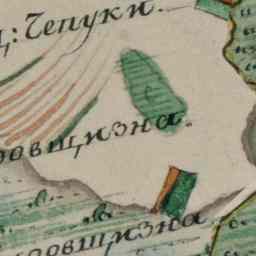 ц: Чепуки.
ровщизна.
ровщизна